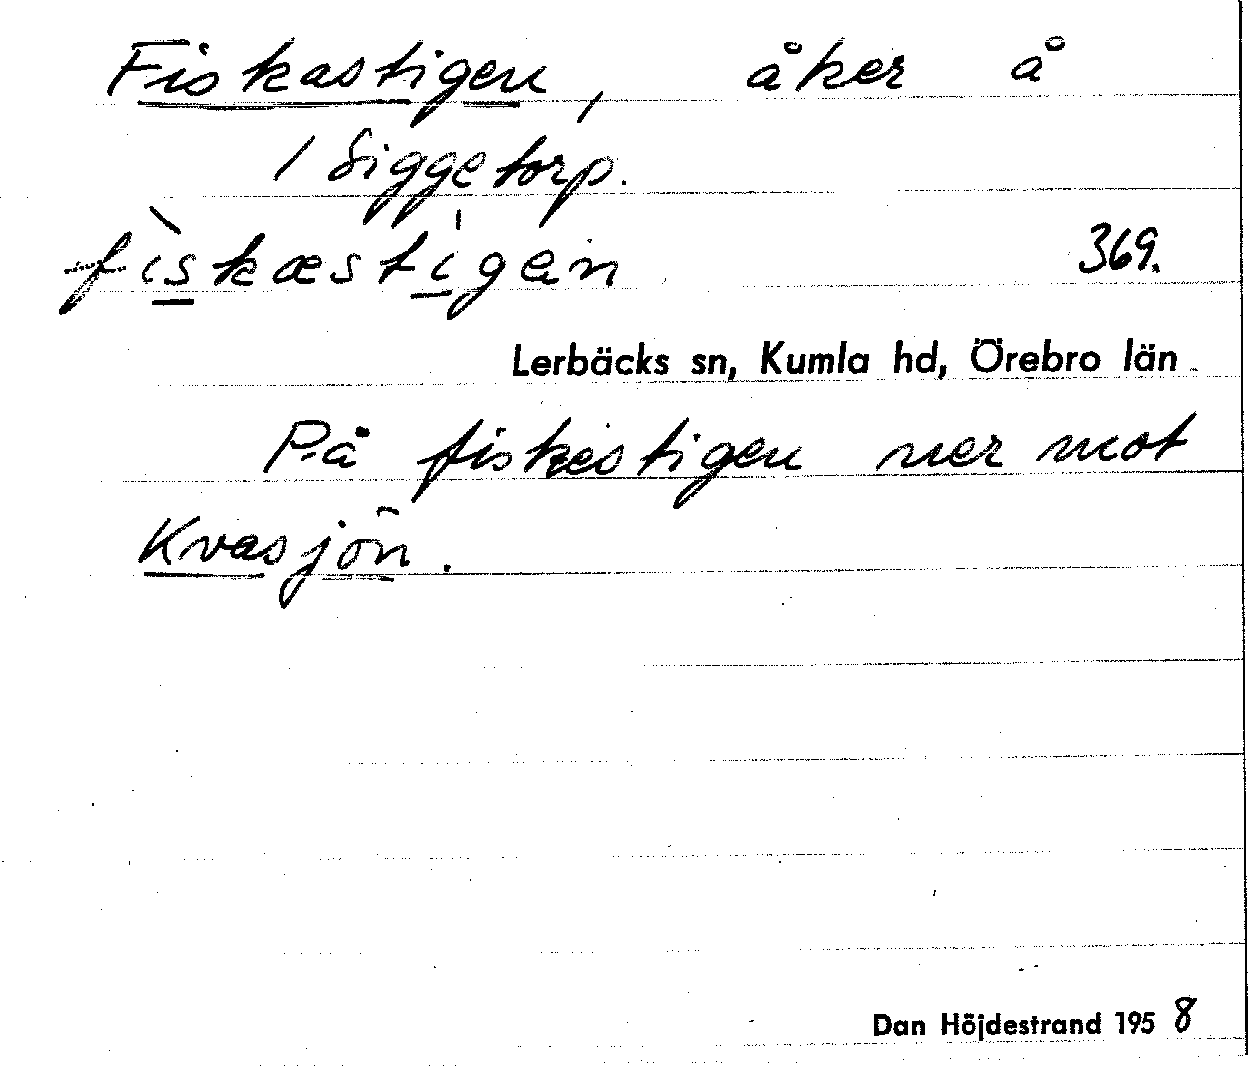 Fiskastigen, åker å
1 Siggetorp.
fìskæstígen 369.
Lerbäcks sn, Kumla hd, Örebro län
På fiskestigen ner mot
Kvasjön.
Dan Höjdestrand 1958